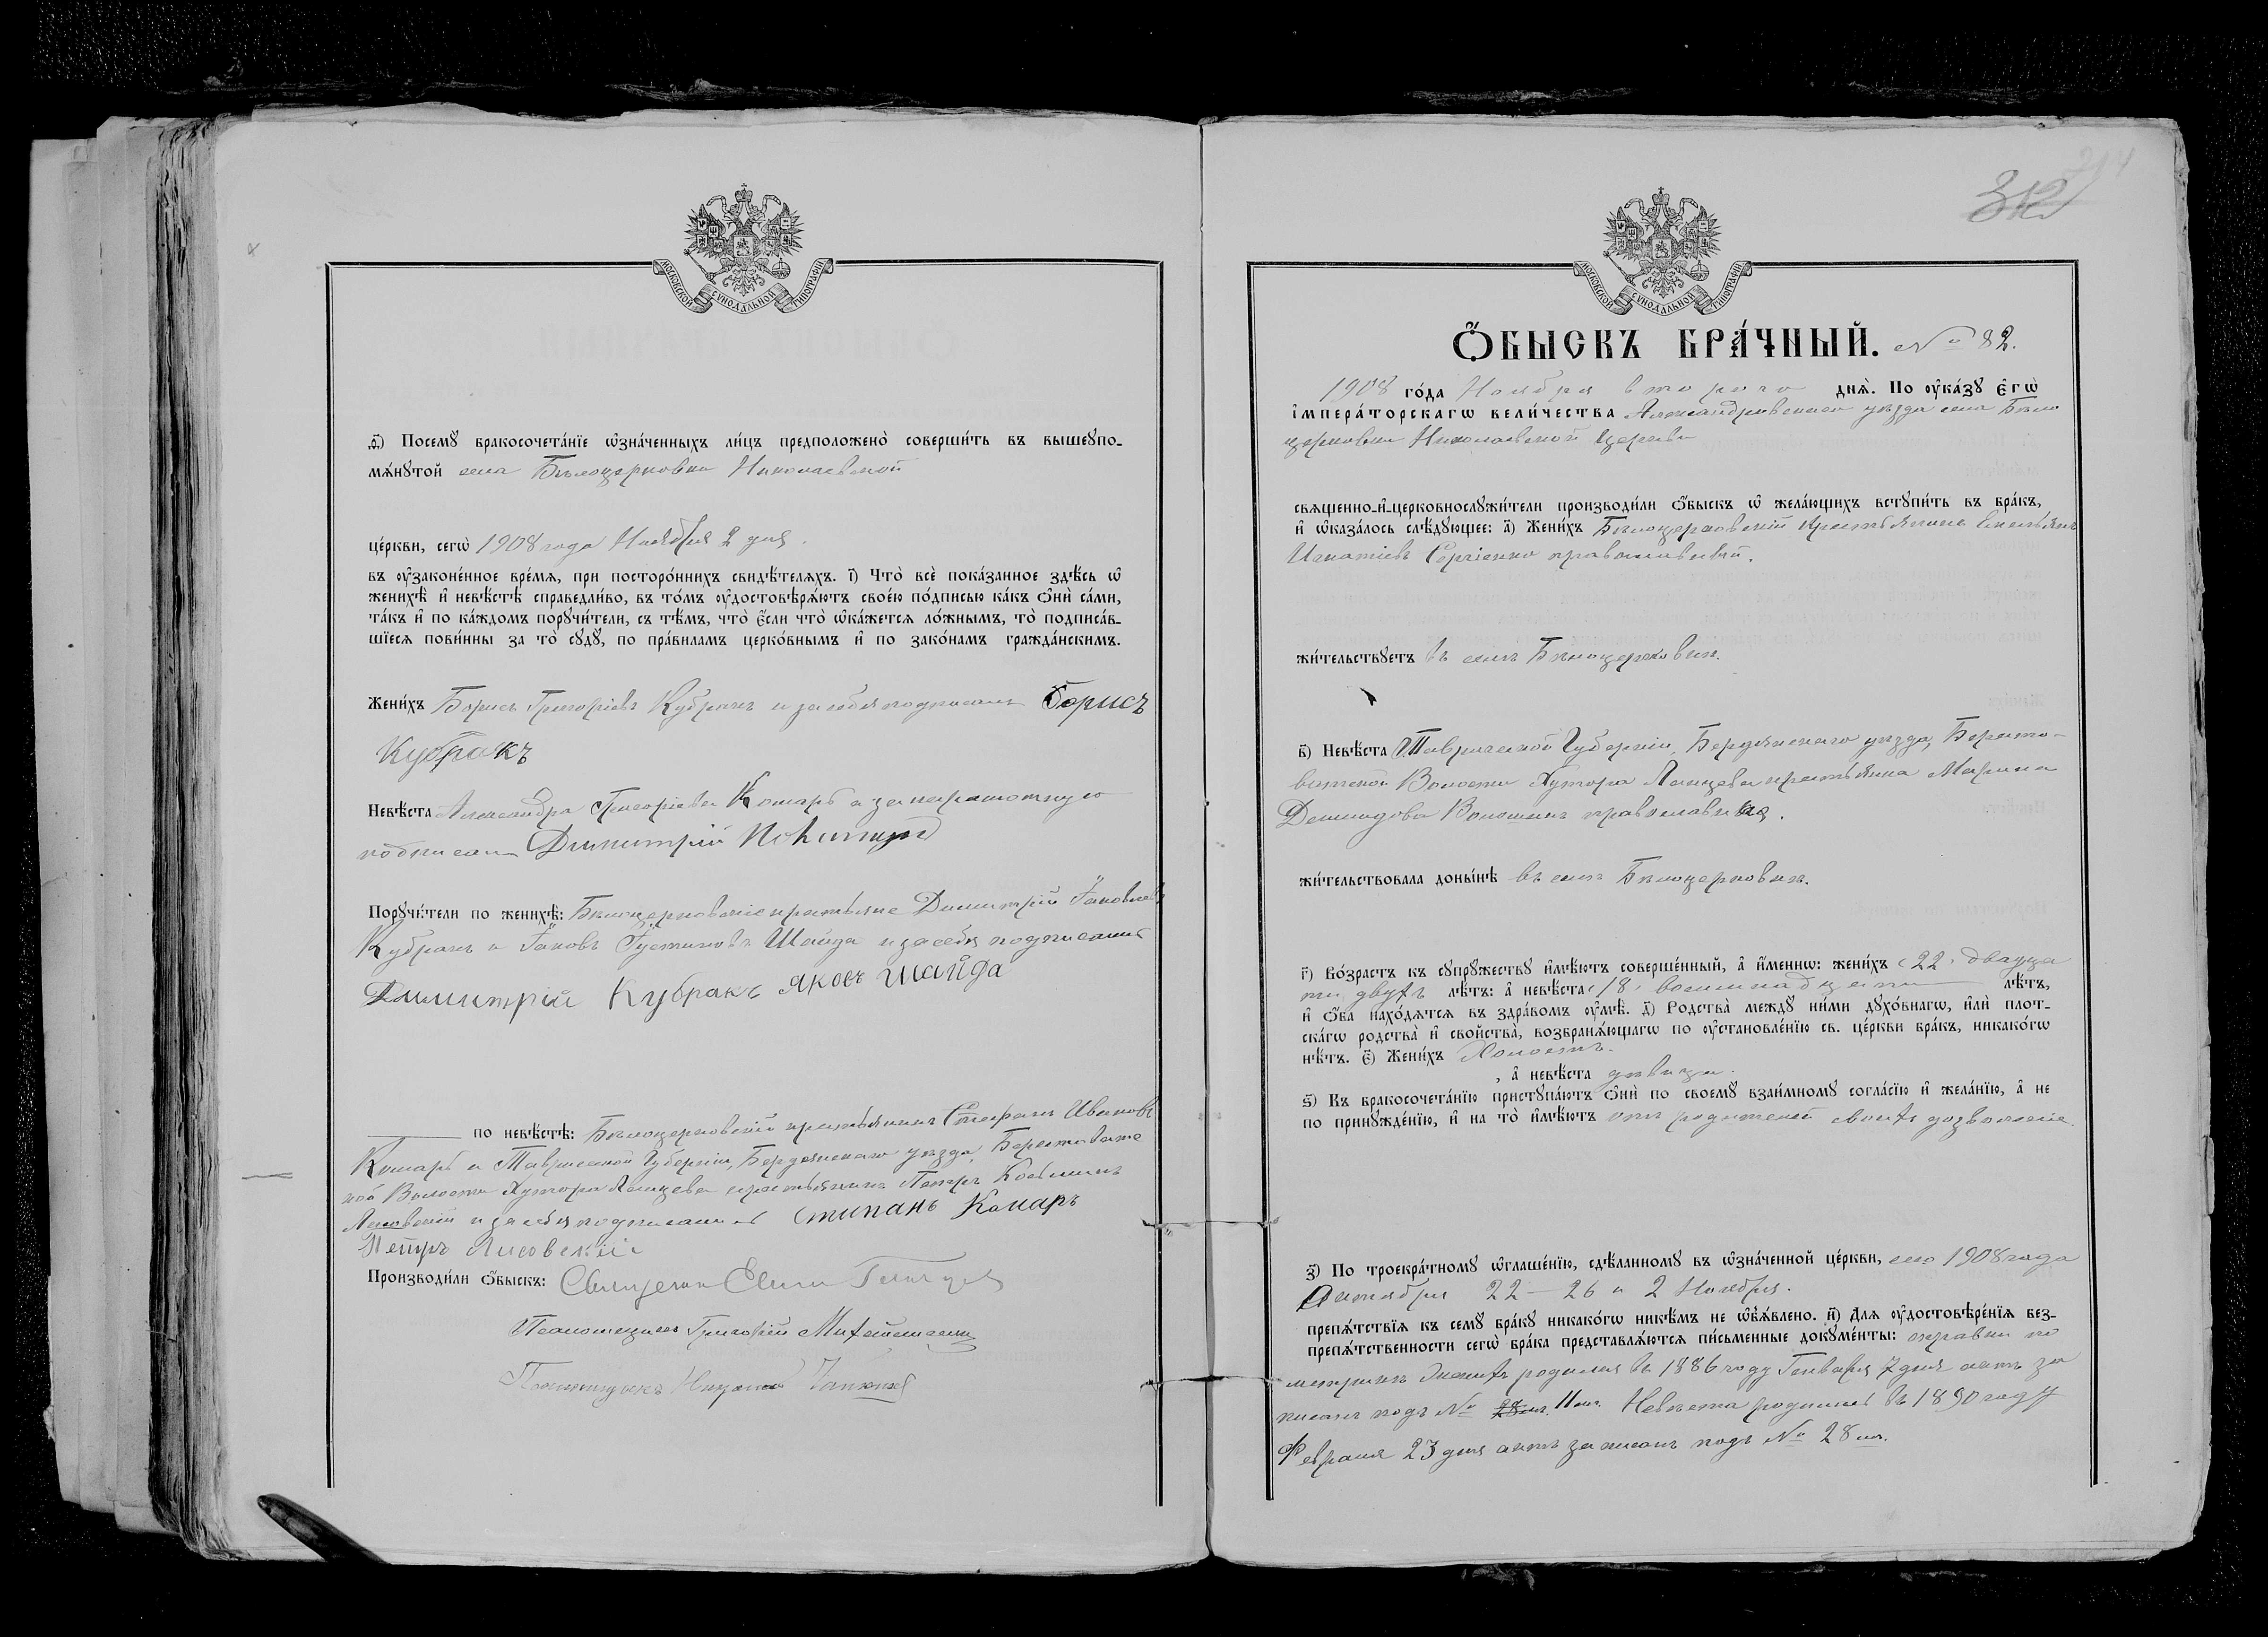 МОСКОВСКОЙ СѴНОДАЛЬНОЙ ТИПОГРАФІИ
ѳ҃) Посемꙋ̀ бракосочета́нїе ѡ҆зна́ченныхъ ли́цъ предположено̀ соверши́ть въ вышеꙋпо-
мѧ́нꙋтой села Бѣлоцерковки Николаевской
це́ркви, сегѡ̀ 1908 года Ноября 2 дня.
въ ᲂу҆законе́нное вре́мѧ, при посторо́ннихъ свидѣ́телѧхъ. і҃) Что̀ всѐ пока́занное здѣ́сь ѡ҆
женихѣ̀ и҆ невѣ́стѣ справедли́во, въ то́мъ ᲂу҆достовѣрѧ́ютъ свое́ю по́дписью ка́къ ѻ҆нѝ са́ми,
та́къ и҆ по ка́ждомъ порꙋчи́тели, съ тѣ́мъ, что̀ є҆́сли что̀ ѡ҆ка́жетсѧ ло́жнымъ, то̀ подписа́в-
шїесѧ пови́нны за то̀ сꙋдꙋ̀, по пра́виламъ церко́внымъ и҆ по зако́намъ гражда́нскимъ.
Жени́хъ Борисъ Григоріевъ Кубракъ и за себя подписалъ Борисъ
Кубракъ
Невѣ́ста Александра Григоріева Комаръ а за неграмотную
подписалъ Димитрій
Порꙋчи́тели по женихѣ̀: Бѣлоцерковскіе крестьяне Димитрій Іаковлевъ
Кубракъ и Іаковъ Іустиновъ Шайда и за себя подписались
Димитрій Кубракъ Яковъ Шайда
по невѣ́стѣ: Бѣлоцерковскій крестьянинъ Стефанъ Ивановъ
Комаръ и Таврической Губерніи, Бердянскаго уѣзда, Берестоват-
кой Волости Хутора Ланцева крестьянинъ Петръ Косьминъ
Лисовскій и за себя подписались Стипанъ Комаръ
Петръ Лисовскій
Производи́ли ѻ҆́быскъ: Священникъ
Псаломщикъ Григорій
Псаломщикъ
МОСКОВСКОЙ СѴНОДАЛЬНОЙ ТИПОГРАФІИ
312
Ѻ҆БЫСКЪ БРА́ЧНЫЙ. № 82.
1908 го́да Ноября второго днѧ̀. По ᲂу҆ка́зꙋ є҆гѡ̀
і҆мпера́торскагѡ вели́чества Александровскаго уѣзда села Бѣло
церковки Николаевской церкви
свѧщенно-и҆-церковнослꙋжи́тели производи́ли ѻ҆́быскъ ѡ҆ жела́ющихъ встꙋпи́ть въ бра́къ,
и҆ ѡ҆каза́лось слѣ́дꙋющее: а҃) Жени́хъ Бѣлоцерковскій крестьянинъ Емельянъ
Игнатіевъ Сергіенко православный.
жи́тельствꙋетъ въ селѣ Бѣлоцерковкѣ.
в҃) Невѣ́ста Таврической Губерніи, Бердянскаго уѣзда, Бересто-
ватской Волости Хутора Ланцева крестьянка Марина
Демидова Волошинъ православная.
жи́тельствовала доны́нѣ въ селѣ Бѣлоцерковкѣ.
г҃) Во́зрастъ къ сꙋпрꙋжествꙋ и҆мѣ́ютъ соверше́нный, а҆ и҆́менно: жени́хъ 22, двадца
ти двухъ лѣ́тъ: а҆ невѣ́ста 18, восемнадцати лѣ́тъ,
и҆ ѻ҆́ба нахо́дѧтсѧ въ здра́вомъ ᲂу҆мѣ̀. д҃) Родства̀ междꙋ̀ ни́ми дꙋхо́внагѡ, и҆лѝ плот-
ска́гѡ родства̀ и҆ сво́йства̀, возбранѧ́ющагѡ по ᲂу҆становле́нїю св. це́ркви бра́къ, никако́гѡ
нѣ́тъ. є҃) Жени́хъ Холостъ.
, а҆ невѣ́ста дѣвица.
ѕ҃) Къ бракосочета́нїю пристꙋпа́ютъ ѻ҆нѝ по своемꙋ̀ взаи́мномꙋ согла́сїю и҆ жела́нїю, а҆ не
по принꙋжде́нїю, и҆ на то̀ и҆мѣ́ютъ отъ родителей своихъ дозволеніе.
з҃) По троекра́тномꙋ ѡ҆глаше́нїю, сдѣ́ланномꙋ въ ѡ҆зна́ченной це́ркви, сего 1908 года
Октября 22 – 26 и 2 Ноября.
препѧ́тствїѧ къ семꙋ̀ бра́кꙋ никако́гѡ никѣ́мъ не ѡ҆б̾ѧ́влено. и҃) Длѧ ᲂу҆достовѣре́нїѧ без-
препѧ́тственности сегѡ̀ бра́ка представлѧ́ютсѧ пи́сьменные докꙋме́нты: справки по
метрикѣ Женихъ родился въ 1886 году Генваря 7 дня актъ за
писанъ подъ № 28мъ. 11мъ. Невѣста родилась въ 1890 году
Февраля 23 дня актъ записанъ подъ № 28мъ.